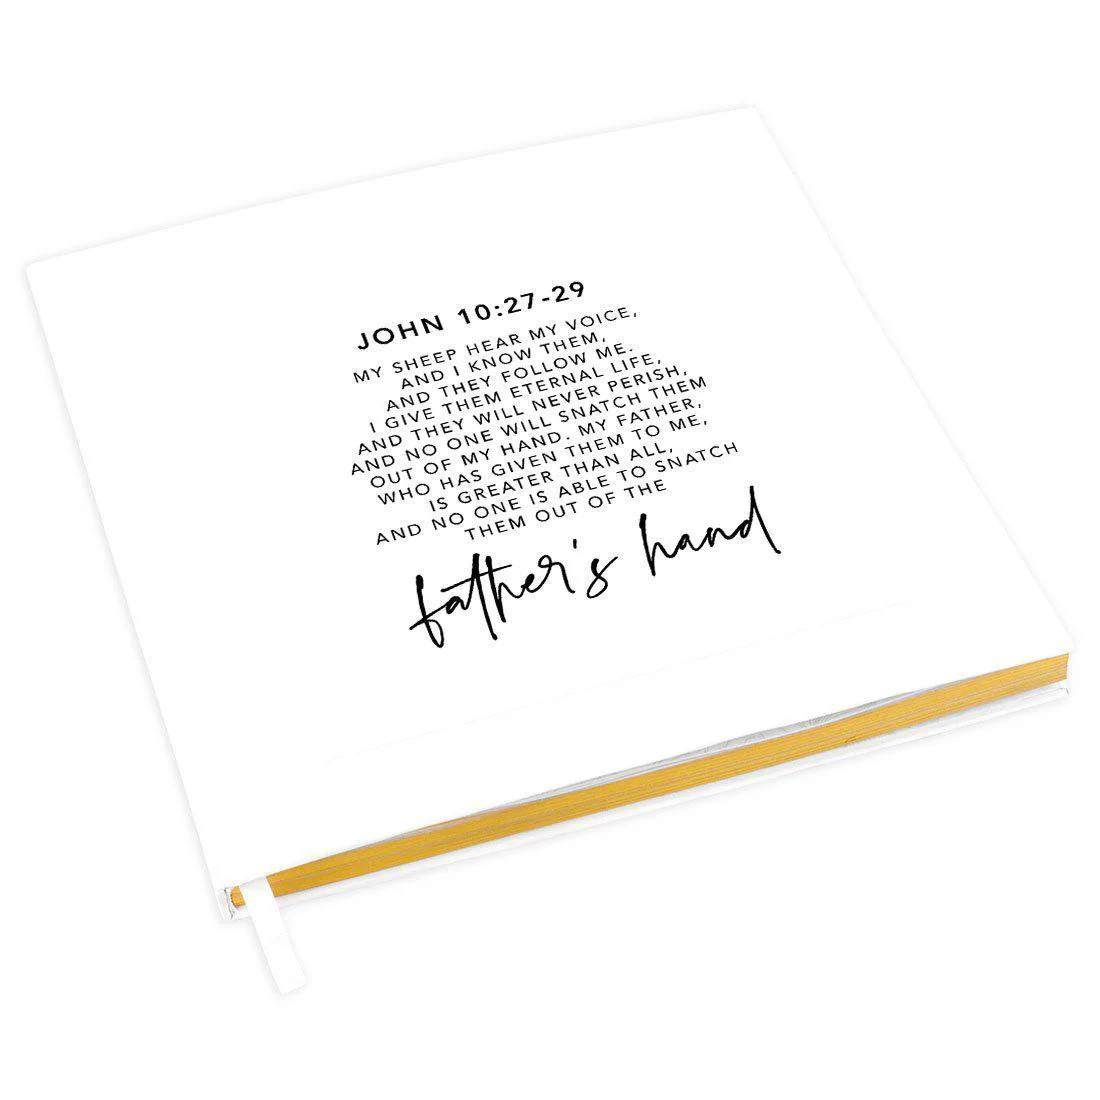 JOHN 10:27-29
MY SHEEP HEAR MY VOICE,
AND I KNOW THEM,
AND THEY FOLLOW ME.
I GIVE THEM ETERNAL LIFE,
AND THEY WILL NEVER PERISH,
AND NO ONE WILL SNATCH THEM
OUT OF MY HAND. MY FATHER,
WHO HAS GIVEN THEM TO ME,
IS GREATER THAN ALL,
AND NO ONE IS ABLE TO SNATCH
THEM OUT OF THE
father's hand